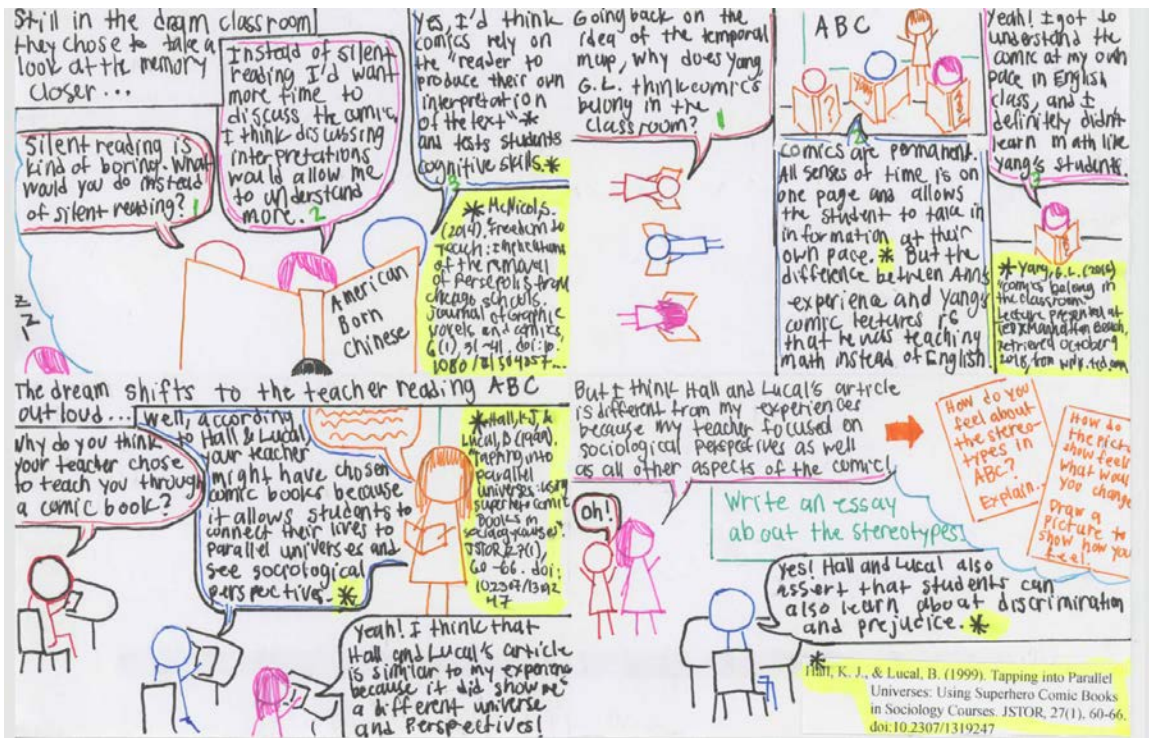 Still in the dream classroom
they chose to take a
look at the memory
closer...
Silent reading is
kind of boring. What
would you do instead
of silent reading? 1
Instead of silent
reading I'd want
more time to
discuss the comic.
I think discussing
interpretations
would allow me
to understand
more. 2
Yes, I'd think
comics rely on
the "reader to
produce their own
interpretation
of the text"*
and tests students
cognitive skills.*
3
* McNicol, S.
(2014). Freedom to
teach: Implications
of the removal
of Persepolis from
Chicago schools.
Journal of Graphic
Novels and Comics
American
Born
Chinese
z
z
z
Going back on the
idea of the temporal
map, why does Yang,
G.L. think comics
belong in the
classroom? 1
ABC
?
Yang
2
comics are permanent.
All senses of time is on
one page and allows
the student to take in
information at their
own pace. * But the
difference between Ann's
experience and Yang's
comic lectures is
that he was teaching
math instead of English
Yeah! I got to
understand the
comic at my own
pace in English
class, and I
definitely didn't
learn math like
Yang's students.
3
?
* Yang, G.L. (2016)
"comics belong in
the classroom."
Lecture presented at
TEDxManhattan Beach,
retrieved October 9
2018, from www.ted.com
The dream shifts to the teacher reading ABC
out loud...
Why do you think
your teacher chose
to teach you through
a comic book?
Well, according
to Hall & Lucal,
your teacher
might have chosen
comic books because
it allows students to
connect their lives to
parallel universes and
see sociological
perspectives. *
* Hall, K.J., &
Lucal, B (1999).
"Tapping into
parallel
universes: using
superhero comic
books in
sociology courses".
JSTOR, 27(1),
60-66. doi:
10.2307/1319247
Yeah! I think that
Hall and Lucal's article
is similar to my experience
because it did show me
a different universe
and perspectives!
But I think Hall and Lucal's article
is different from my experiences
because my teacher focused on
sociological perspectives as well
as all other aspects of the comic!
oh!
Write an essay
about the stereotypes.
How do you
feel about
the stereo-
types in
ABC?
Explain..
How do
the pict
show feel
what would
you change
Draw a
picture to
show how you
feel
yes! Hall and Lucal also
assert that students can
also learn about discrimination
and prejudice. *
*
Hall, K. J., & Lucal, B. (1999). Tapping into Parallel
Universes: Using Superhero Comic Books
in Sociology Courses. JSTOR, 27(1), 60-66.
doi:10.2307/1319247